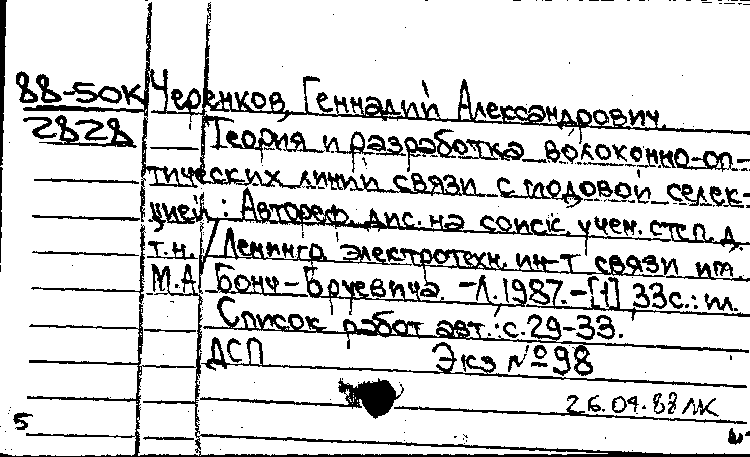 88-50к Черенков, Геннадий Александрович.
2828 Теория и разработка волоконно-оп-
тических линий связи с модовой селек-
цией: Автореф. дис. на соиск. учен. степ. д.
т.н. / Ленингр. электротехн. ин-т связи им.
М.А. Бонч-Бруевича. -Л. 1987.-[1], 33с.: ил.
Список работ авт.: с.29-33.
ДСП Экз №98
26.04.88 ЛК
5